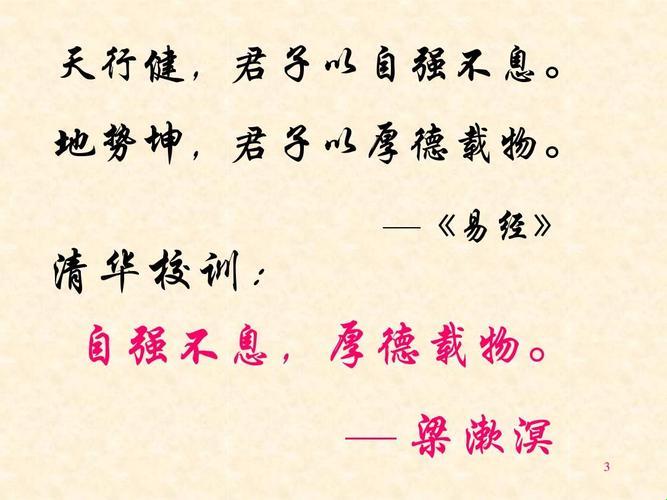 天行健，君子以自强不息。
地势坤，君子以厚德载物。
—《易经》
清华校训：
自强不息，厚德载物。
— 梁漱溟
3